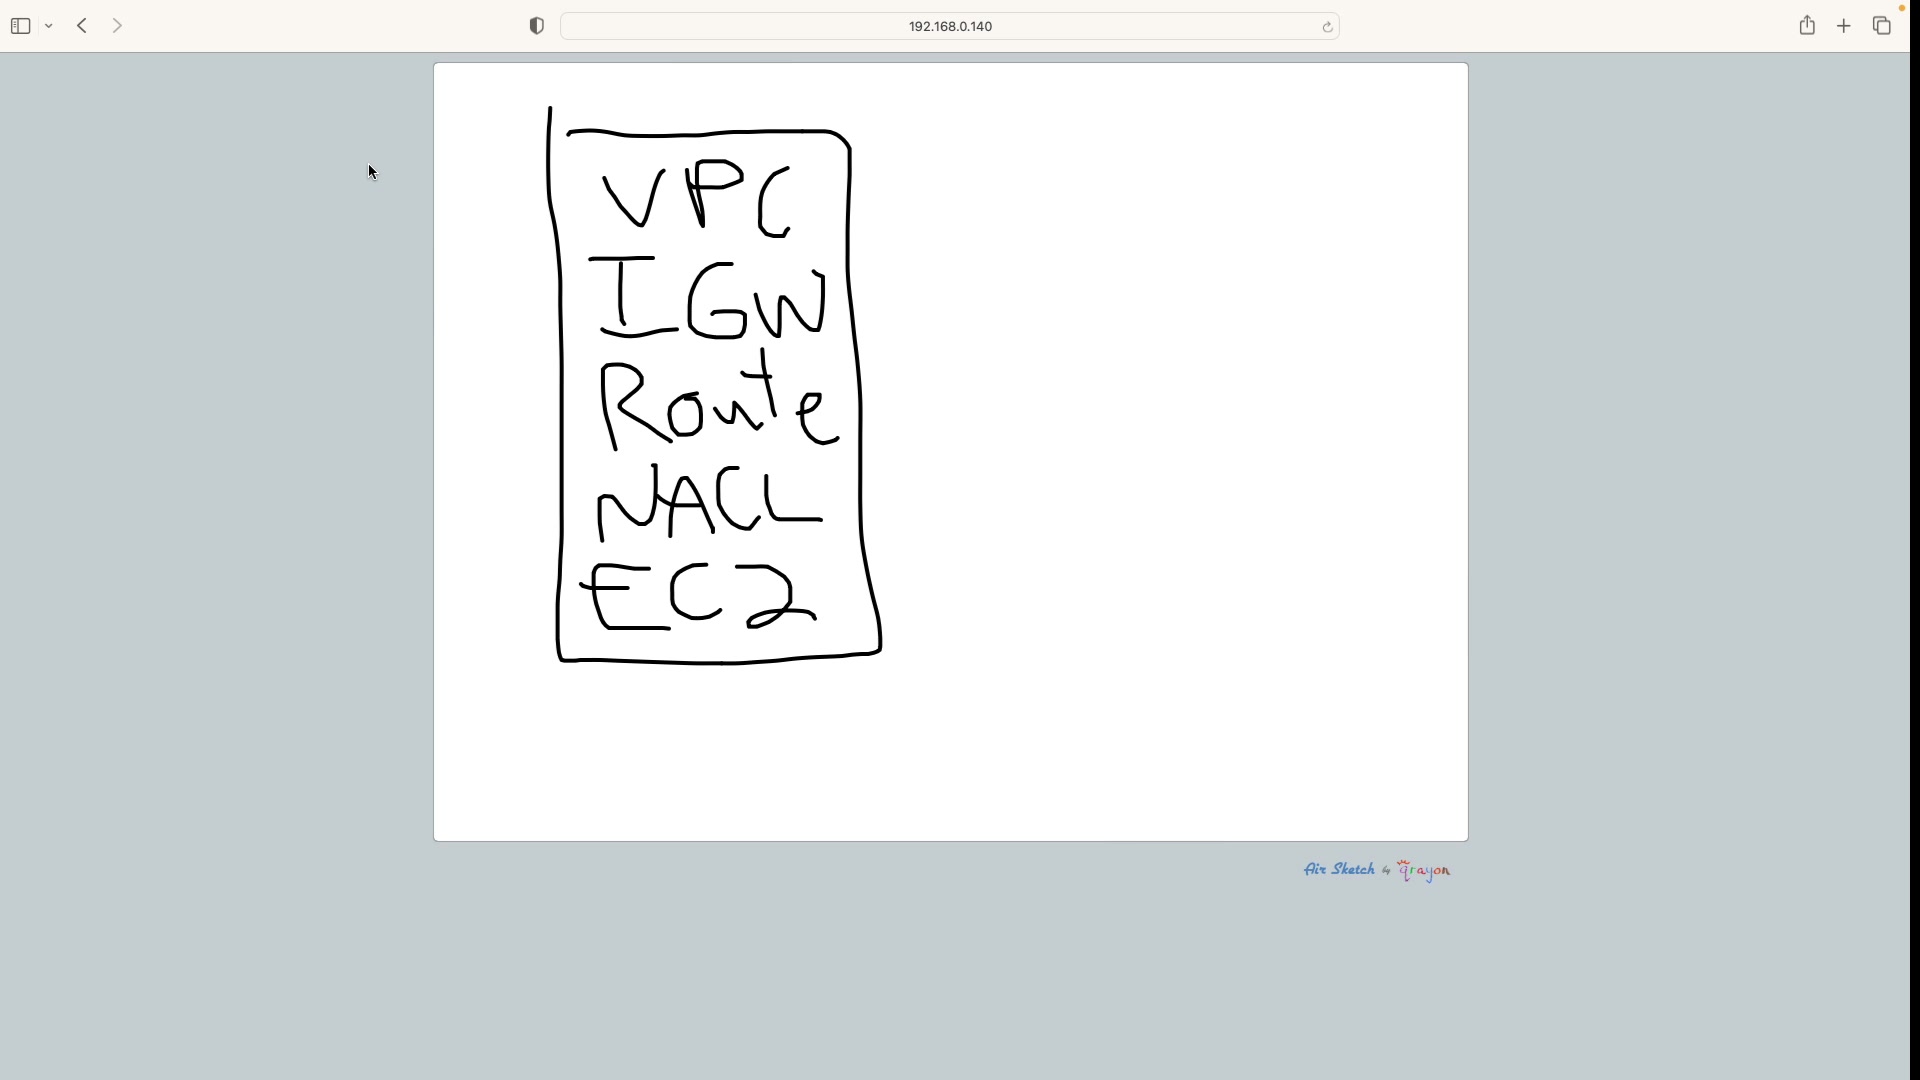 192.168.0.140
VPC
IGW
Route
NACL
EC2
Air Sketch by qrayon